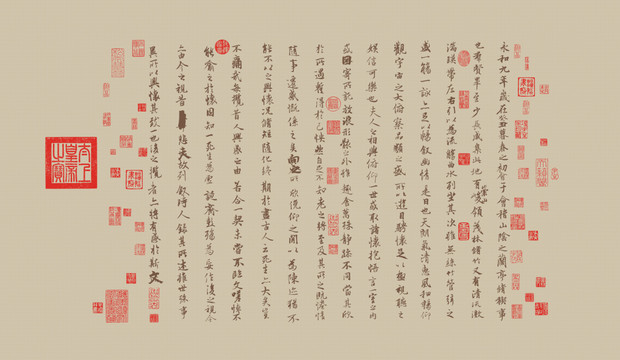 永和九年歲在癸丑暮春之初會于會稽山陰之蘭亭脩稧事
也羣賢畢至少長咸集此地有崇山峻領茂林脩竹又有清流激
湍暎帶左右引以為流觴曲水列坐其次雖無絲竹管弦之
盛一觴一詠亦足以暢敘幽情是日也天朗氣清惠風和暢仰
觀宇宙之大俯察品類之盛所以遊目騁懷足以極視聽之
娛信可樂也夫人之相與俯仰一世或取諸懷抱悟言一室之內
或因寄所託放浪形骸之外雖趣舍萬殊靜躁不同當其欣
於所遇蹔得於己怏然自足不知老之將至及其所之既惓情
隨事遷感慨係之矣向之所欣俛仰之閒以為陳迹猶不
能不以之興懷況脩短隨化終期於盡古人云死生亦大矣豈
不痛哉每攬昔人興感之由若合一契未嘗不臨文嗟悼不
能喻之於懷固知一死生為虛誕齊彭殤為妄作後之視今
亦由今之視昔悲夫故列敘時人錄其所述雖世殊事
異所以興懷其致一也後之攬者亦將有感於斯文
太上皇帝之寶